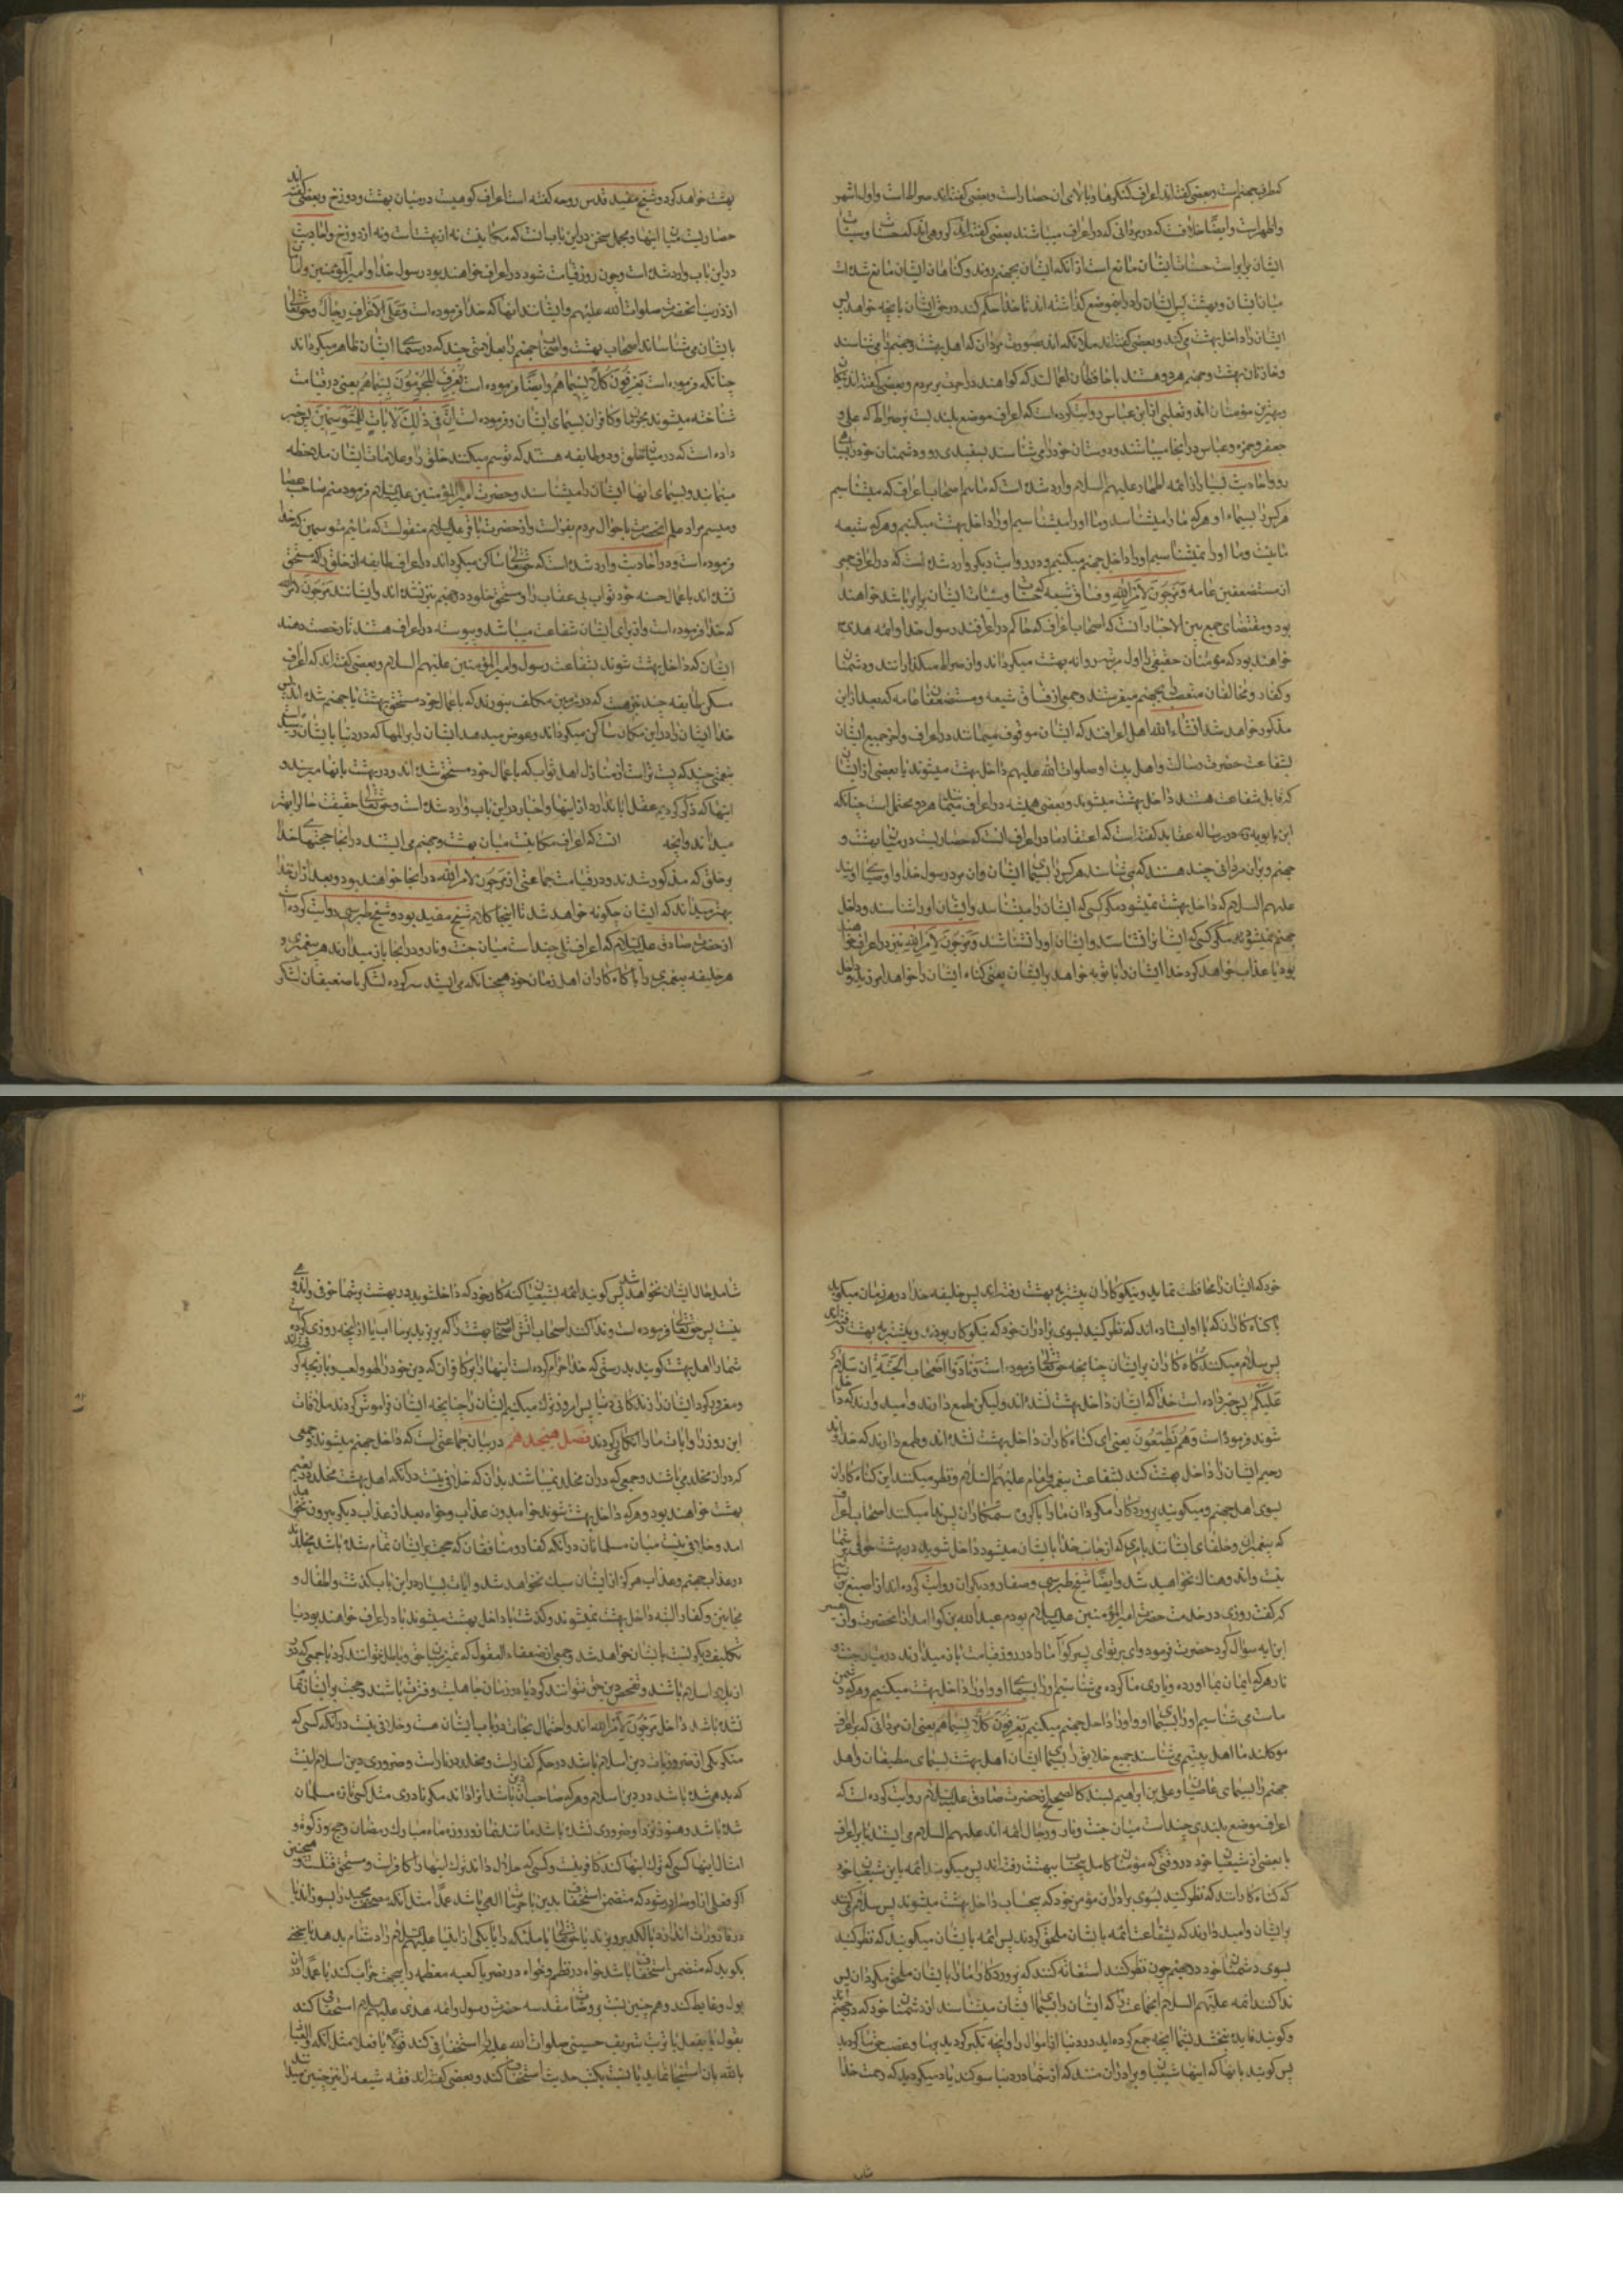 که طرف جهنم است و بعضی گفته‌اند اعراف کنگرها و بالای آن حصار است و بعضی گفته‌اند صراط است و اول اشهر
و اظهر است و ایضا خلافست که در مردانی که در اعراف میباشند بعضی گفته‌اند که گروهی‌اند که حسنات و سیئات
ایشان برابر است حسنات ایشان مانع است از آنکه ایشان بجهنم روند و گناهان ایشان مانع شده است
میان ایشان و بهشت پس ایشان را در این موضع گذاشته‌اند تا خدا حکم کند در حق ایشان بانچه خواهد پس
ایشان را داخل بهشت می‌کند و بعضی گفته‌اند ملائکه‌اند بصورت مردان که اهل بهشت و جهنم را می‌شناسند
و خازنان بهشت و جهنم هر دو هستند یا حافظان اعمالند که گواهند در آخرت بر مردم و بعضی گفته‌اند نیکان
و بهترین مؤمنان‌اند و ثعلبی از ابن عباس روایت کرده است که اعراف موضع بلندیست بر صراط که علی و
جعفر و حمزه و عباس در آنجا میباشند و دوستان خود را می‌شناسند بسفیدی رو و دشمنان خود را بسیاهی
رو و احادیث بسیار از ائمه اطهار علیهم السلام وارد شده است که مائیم اصحاب اعراف که میشناسیم
هرکس را بسیماء او هرکه ما را میشناسد و ما او را میشناسیم او را داخل بهشت میکنیم و هرکه شیعه
ما نیست و ما او را نمیشناسیم او را داخل جهنم میکنیم و در روایت دیگر وارد شده است که در اعراف جمعی
از مستضعفین عامه و مرجون لامر الله و فساق شیعه که حسنات و سیئات ایشان برابر باشد خواهند
بود و مقتضای جمع بین الاخبار آنست که اصحاب اعراف که حاکم در اعرافند رسول خدا و ائمه هدی
خواهند بود که مؤمنان حقیقی را اول مرتبه روانه بهشت میگردانند و از صراط میگذرانند و دشمنان
و کفار و مخالفان متعصب را بجهنم میفرستند و جمعی از فساق شیعه و مستضعفان عامه که بعد از این
مذکور خواهد شد انشاء الله اهل اعرافند که ایشان موقوف میمانند در اعراف و آخر جمیع ایشان
بشفاعت حضرت رسالت و اهل بیت او صلوات الله علیهم داخل بهشت میشوند یا بعضی از ایشان
که قابل شفاعت هستند داخل بهشت میشوند و بعضی همیشه در اعراف میمانند هر دو محتمل است چنانکه
ابن بابویه در رساله عقاید گفته است که اعتقاد ما در اعراف آنست که حصاریست در میان بهشت و
جهنم و بر آن مردانی چند هستند که می‌شناسند هرکس را بسیمای ایشان و آن مردان رسول خدا و اوصیای اویند
علیهم السلام که داخل بهشت نمیشود مگر کسی که ایشان را میشناسد و ایشان او را شناسند و داخل
جهنم نمیشود مگر کسی که ایشان را نشناسد و ایشان او را نشناسند و مرجون لامر الله نیز در اعراف خواهند
بود یا عذاب خواهد کرد خدا ایشان را یا توبه خواهد بر ایشان یعنی گناه ایشان را خواهد آمرزید و داخل
بهشت خواهد کرد و شیخ مفید قدس روحه گفته است اعراف کوهیست در میان بهشت و دوزخ و بعضی گفته‌اند
حصاریست میان اینها و مجمل سخن در این باب آنست که مکانیست نه از بهشت است و نه از دوزخ و احادیث
در این باب وارد شده است و چون روز قیامت شود در اعراف خواهند بود رسول خدا و امیر المؤمنین و امامان
از ذریه آنحضرت صلوات الله علیهم و ایشانند آنها که خدا فرموده است و علی الاعراف رجال و حق تعالی
بایشان می‌شناساند اصحاب بهشت و اصحاب جهنم را بعلامتی چند که در سیمای ایشان ظاهر میگرداند
چنانکه فرموده است یعرفون کلا بسیماهم و ایضا فرموده است یعرف المجرمون بسیماهم یعنی در قیامت
شناخته میشوند مجرمان و کافران بسیمای ایشان و فرموده است ان فی ذلک لآیات للمتوسمین پس خبر
داده است که در میان خلق او دو طایفه هستند که توسم میکنند خلق را و علامات ایشان ملاحظه
مینمایند و بسیمای آنها ایشان را میشناسند و حضرت امیر المؤمنین علیه السلام فرمود منم صاحب عصا
و میسم مراد علم آنحضرت باحوال مردم بفراست و از حضرت باقر علیه السلام منقولست که مائیم متوسمین که خدا
فرموده است و در احادیث وارد شده است که حق تعالی ساکن میگرداند در اعراف طایفه از خلق را که مستحق
نشده‌اند باعمال حسنه خود ثواب بی عقاب را و مستحق خلود در جهنم نیز نشده‌اند و ایشانند مرجون لامر الله
که خدا فرموده است و از برای ایشان شفاعت میباشد و پیوسته در اعراف هستند تا رخصت دهند
ایشان که داخل بهشت شوند بشفاعت رسول و امیر المؤمنین علیهم السلام و بعضی گفته‌اند که اعراف
مسکن طایفه چند نیز هست که در زمین مکلف نبودند که باعمال خود مستحق بهشت یا جهنم شده‌اند پس
خدا ایشان را در این مکان ساکن میگرداند و عوض میدهد ایشان را بر المها که در دنیا بایشان رسیده است
بنعمتی چند که پست تر است از منازل اهل ثواب که باعمال خود مستحق شده‌اند و در بهشت بآنها میرسند و
اینها که ذکر کردیم عقل ابا ندارد از اینها و اخبار در این باب وارد شده است و حق تعالی حقیقت حال را بهتر
میداند و آنچه آنست که اعراف مکانیست میان بهشت و جهنم می‌ایستند در آنجا حجتهای خدا
بر خلق که مذکور شدند و در قیامت جماعتی از مرجون لامر الله در آنجا خواهند بود و بعد از آن خدا
بهتر میداند که ایشان چگونه خواهد شد تا اینجا کلام شیخ مفید بود و شیخ طبرسی روایت کرده است
از حضرت صادق علیه السلام که اعراف تلی چند است میان جنت و نار و در آنجا باز میدارند هر پیغمبری و
هر خلیفه پیغمبری را با گناه‌کاران اهل زمان خود همچنانکه می‌ایستد سرکرده لشکر با ضعیفان لشکر
خود که ایشان را محافظت نماید و نیکوکاران پیشتر به بهشت رفته‌اند پس خلیفه خدا در هر زمان میگوید
با گناه‌کاران که با او ایستاده‌اند که نظر کنید بسوی برادران خود که نیکوکار بودند و پیشتر به بهشت رفته‌اند
پس سلام میکنند گناه‌کاران بر ایشان چنانچه حق تعالی فرموده است و نادوا اصحاب الجنة ان سلام
علیکم پس خبر داده است خدا که ایشان داخل بهشت نشده‌اند و لیکن طمع دارند و امید دارند که داخل
شوند فرموده است و هم یطمعون یعنی این گناه‌کاران داخل بهشت نشده‌اند و طمع دارند که خداوند
رحیم ایشان را داخل بهشت کند بشفاعت پیغمبر و امام علیهم السلام و نظر میکنند این گناه‌کاران
بسوی اهل جهنم و میگویند پروردگارا مگردان ما را با گروه ستمکاران پس ندا میکنند اصحاب اعراف
که پیغمبران و خلفای ایشانند بامری که از جانب خدا بایشان میشود داخل شوید در بهشت خوفی بر شما
نیست و اندوهناک نخواهید شد و ایضا شیخ طبرسی و صفار و دیگران روایت کرده‌اند از اصبغ بن نباته
که گفت روزی در خدمت حضرت امیر المؤمنین علیه السلام بودم عبد الله بن کوا آمد از آنحضرت تفسیر
این آیه سؤال کرد حضرت فرمود وای بر تو ای پسر کوا ما را در روز قیامت باز میدارند در میان جنت و
نار هرکه ایمان بما آورده و یاری ما کرده می‌شناسیم او را بسیمای او و او را داخل بهشت میکنیم و هرکه دشمن
ماست می‌شناسیم او را بسیمای او و او را داخل جهنم میکنیم یعرفون کلا بسیماهم یعنی آن مردانی که بر اعراف
موکلند ما اهل بیتیم می‌شناسند جمیع خلایق را بسیمای ایشان اهل بهشت بسیمای مطیعان و اهل
جهنم را بسیمای عاصیان و علی بن ابراهیم بسند کالصحیح از حضرت صادق علیه السلام روایت کرده است که
اعراف موضع بلندی چند است میان جنت و نار و رجال ائمه‌اند علیهم السلام می‌ایستند بر اعراف
با بعضی از شیعیان خود در وقتی که مؤمنان کامل بیحساب ببهشت رفته‌اند پس میگویند ائمه باین شیعیان خود
که گناه‌کارانند که نظر کنید بسوی برادران مؤمن خود که بیحساب داخل بهشت میشوند پس سلام می‌کنند
بر ایشان و امید دارند که بشفاعت ائمه بایشان ملحق گردند پس ائمه بایشان میگویند که نظر کنید
بسوی دشمنان خود در جهنم چون نظر کنند استغاثه کنند که پروردگارا ما را بایشان ملحق مگردان پس
ندا کنند ائمه علیهم السلام آنجماعت را که ایشان را بسیمای ایشان میشناسند از دشمنان خود که در جهنمند
و گویند فایده نبخشد شما را آنچه جمع کرده اید در دنیا از اموال را و آنچه تکبر کردید بر ما و غصب حق ما کردید
پس گویند بآنها که اینها شیعیان و برادران منند که از شما در دنیا سوگند یاد میکردید که رحمت خدا
شامل حال ایشان نخواهد شد پس گویند ائمه بشیعیان گنه‌کار خود که داخل شوید در بهشت بر شما خوفی و اندوهی
نیست پس حق تعالی فرموده است و ندا کنند اصحاب آتش اصحاب بهشت را که بریزید بر ما آب یا از آنچه روزی کرده است
شما را اهل بهشت گویند بدرستی که خدا حرام کرده است اینها را بر کافران که دین خود را لهو و لعب و بازیچه گرفته‌اند
و مغرور کرد ایشان را زندگانی دنیا پس امروز ترک میکنیم ایشان را چنانچه ایشان فراموش کردند ملاقات
این روز را و آیات ما را انکار کردند فصل هیجدهم در بیان جماعتی است که داخل جهنم میشوند و جمعی
که در آن مخلد می‌باشند و جمعی که در آن مخلد نمیباشند بدان که خلافی نیست در آنکه اهل بهشت مخلد در نعیم
بهشت خواهند بود و هرکه داخل بهشت شود خواه بدون عذاب و خواه بعد از عذاب دیگر بیرون نخواهد
آمد و خلافی نیست میان مسلمانان در آنکه کفار و منافقان که حجت بر ایشان تمام شده باشد مخلدند
در عذاب جهنم و عذاب هرگز از ایشان سبک نخواهد شد و آیات بسیار در این باب گذشت و اطفال و
مجانین و کفار البته داخل جهنم نمیشوند و گذشت یا داخل بهشت میشوند یا در اعراف خواهند بود یا
تکلیف دیگر نسبت بایشان خواهد شد و جمعی از ضعفاء العقول که تمیز میان حق و باطل نتوانند کرد یا جمعی که دور
از بلاد اسلام باشند و تفحص دین حق نتوانند کرد یا در زمان جاهلیت و فترت باشند و حجت بر ایشان تمام
نشده باشد داخل مرجون لامر الله‌اند و احتمال نجات در باب ایشان هست و خلافی نیست در آنکه کسی که
منکر یکی از ضروریات دین اسلام باشد در حکم کفار است و مخلد در نار است و ضروری دین اسلام اینست
که بدیهی شده باشد در دین اسلام و هرکه صاحب آن دین باشد آنرا داند مگر نادری مثل کسی که تازه مسلمان
شده باشد و هنوز نزد او ضروری نشده باشد مانند نماز و روزه ماه مبارک رمضان و حج و زکوة و
امثال اینها کسی که ترک اینها کند کافر نیست و کسی که حلال داند ترک اینها را کافر است و مستحق قتلست و همچنین
اگر فعلی از او صادر شود که متضمن استخفاف بدین یا حرمات الهی باشد عمدا مثل آنکه مصحف مجید را بسوزاند یا
در قاذورات اندازد یا لگد بر او بزند یا حق تعالی یا ملئکه را یا یکی از انبیا علیهم السلام را دشنام بدهد یا سخنی
بگوید که متضمن استخفاف باشد خواه در نظم و خواه در نثر یا کعبه معظمه را بیجهت خراب کند یا عمدا در آن
بول و غایط کند و همچنین نسبت بروضات مقدسه حضرت رسول و ائمه هدی علیهم السلام استخفاف کند
بقول یا بفعل یا تربت شریف حسینی صلوات الله علیه را استخفاف کند قولا یا فعلا مثل آنکه العیاذ
بالله بآن استنجا نماید یا نسبت بکتب حدیث استخفاف کند و بعضی گفته‌اند فقه شیعه را نیز چنین میدانند